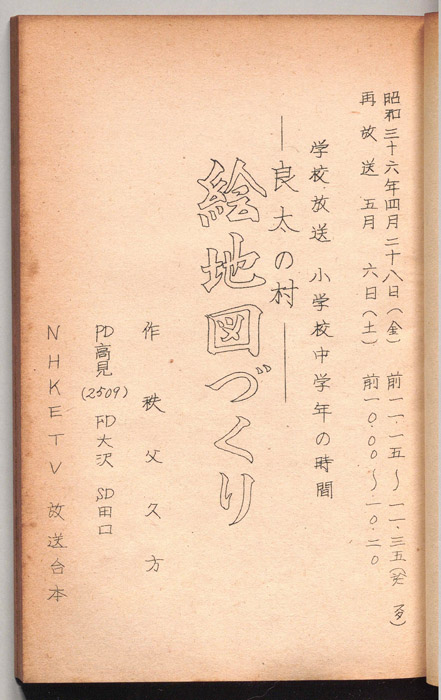 昭和三十六年四月二十八日(金) 前一一.一五〜一一.三五
再放送 五月 六日(土) 前一〇.〇〇〜一〇.二〇
学校放送 小学校中学年の時間
―良太の村―
絵地図づくり
作 秩父久方
PD高見(2509) FD大沢 SD田口
NHKETV 放送台本